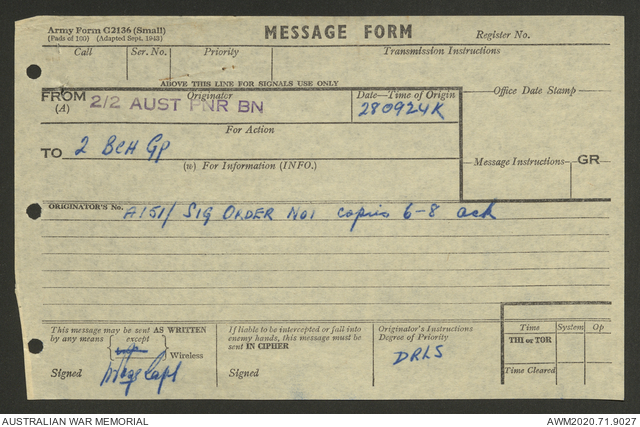 Army Form C2136 (Small)
(Pads of 100) (Adapted Sept. 1943)
MESSAGE FORM
Register No.
Call Ser. No. Priority Transmission Instructions
ABOVE THIS LINE FOR SIGNALS USE ONLY
FROM (A) Originator
2/2 AUST PNR BN
Date—Time of Origin
280924K
Office Date Stamp
For Action
TO 2 BCH GP
(w) For Information (INFO.)
Message Instructions GR
ORIGINATOR'S No. A151/ SIG ORDER No1 copies 6-8 ack
This message may be sent AS WRITTEN
by any means except
Wireless
Signed Capt
If liable to be intercepted or fall into
enemy hands, this message must be
sent IN CIPHER
Signed
Originator's Instructions
Degree of Priority
DRLS
Time System Op
THI or TOR
Time Cleared
AUSTRALIAN WAR MEMORIAL
AWM2020.71.9027